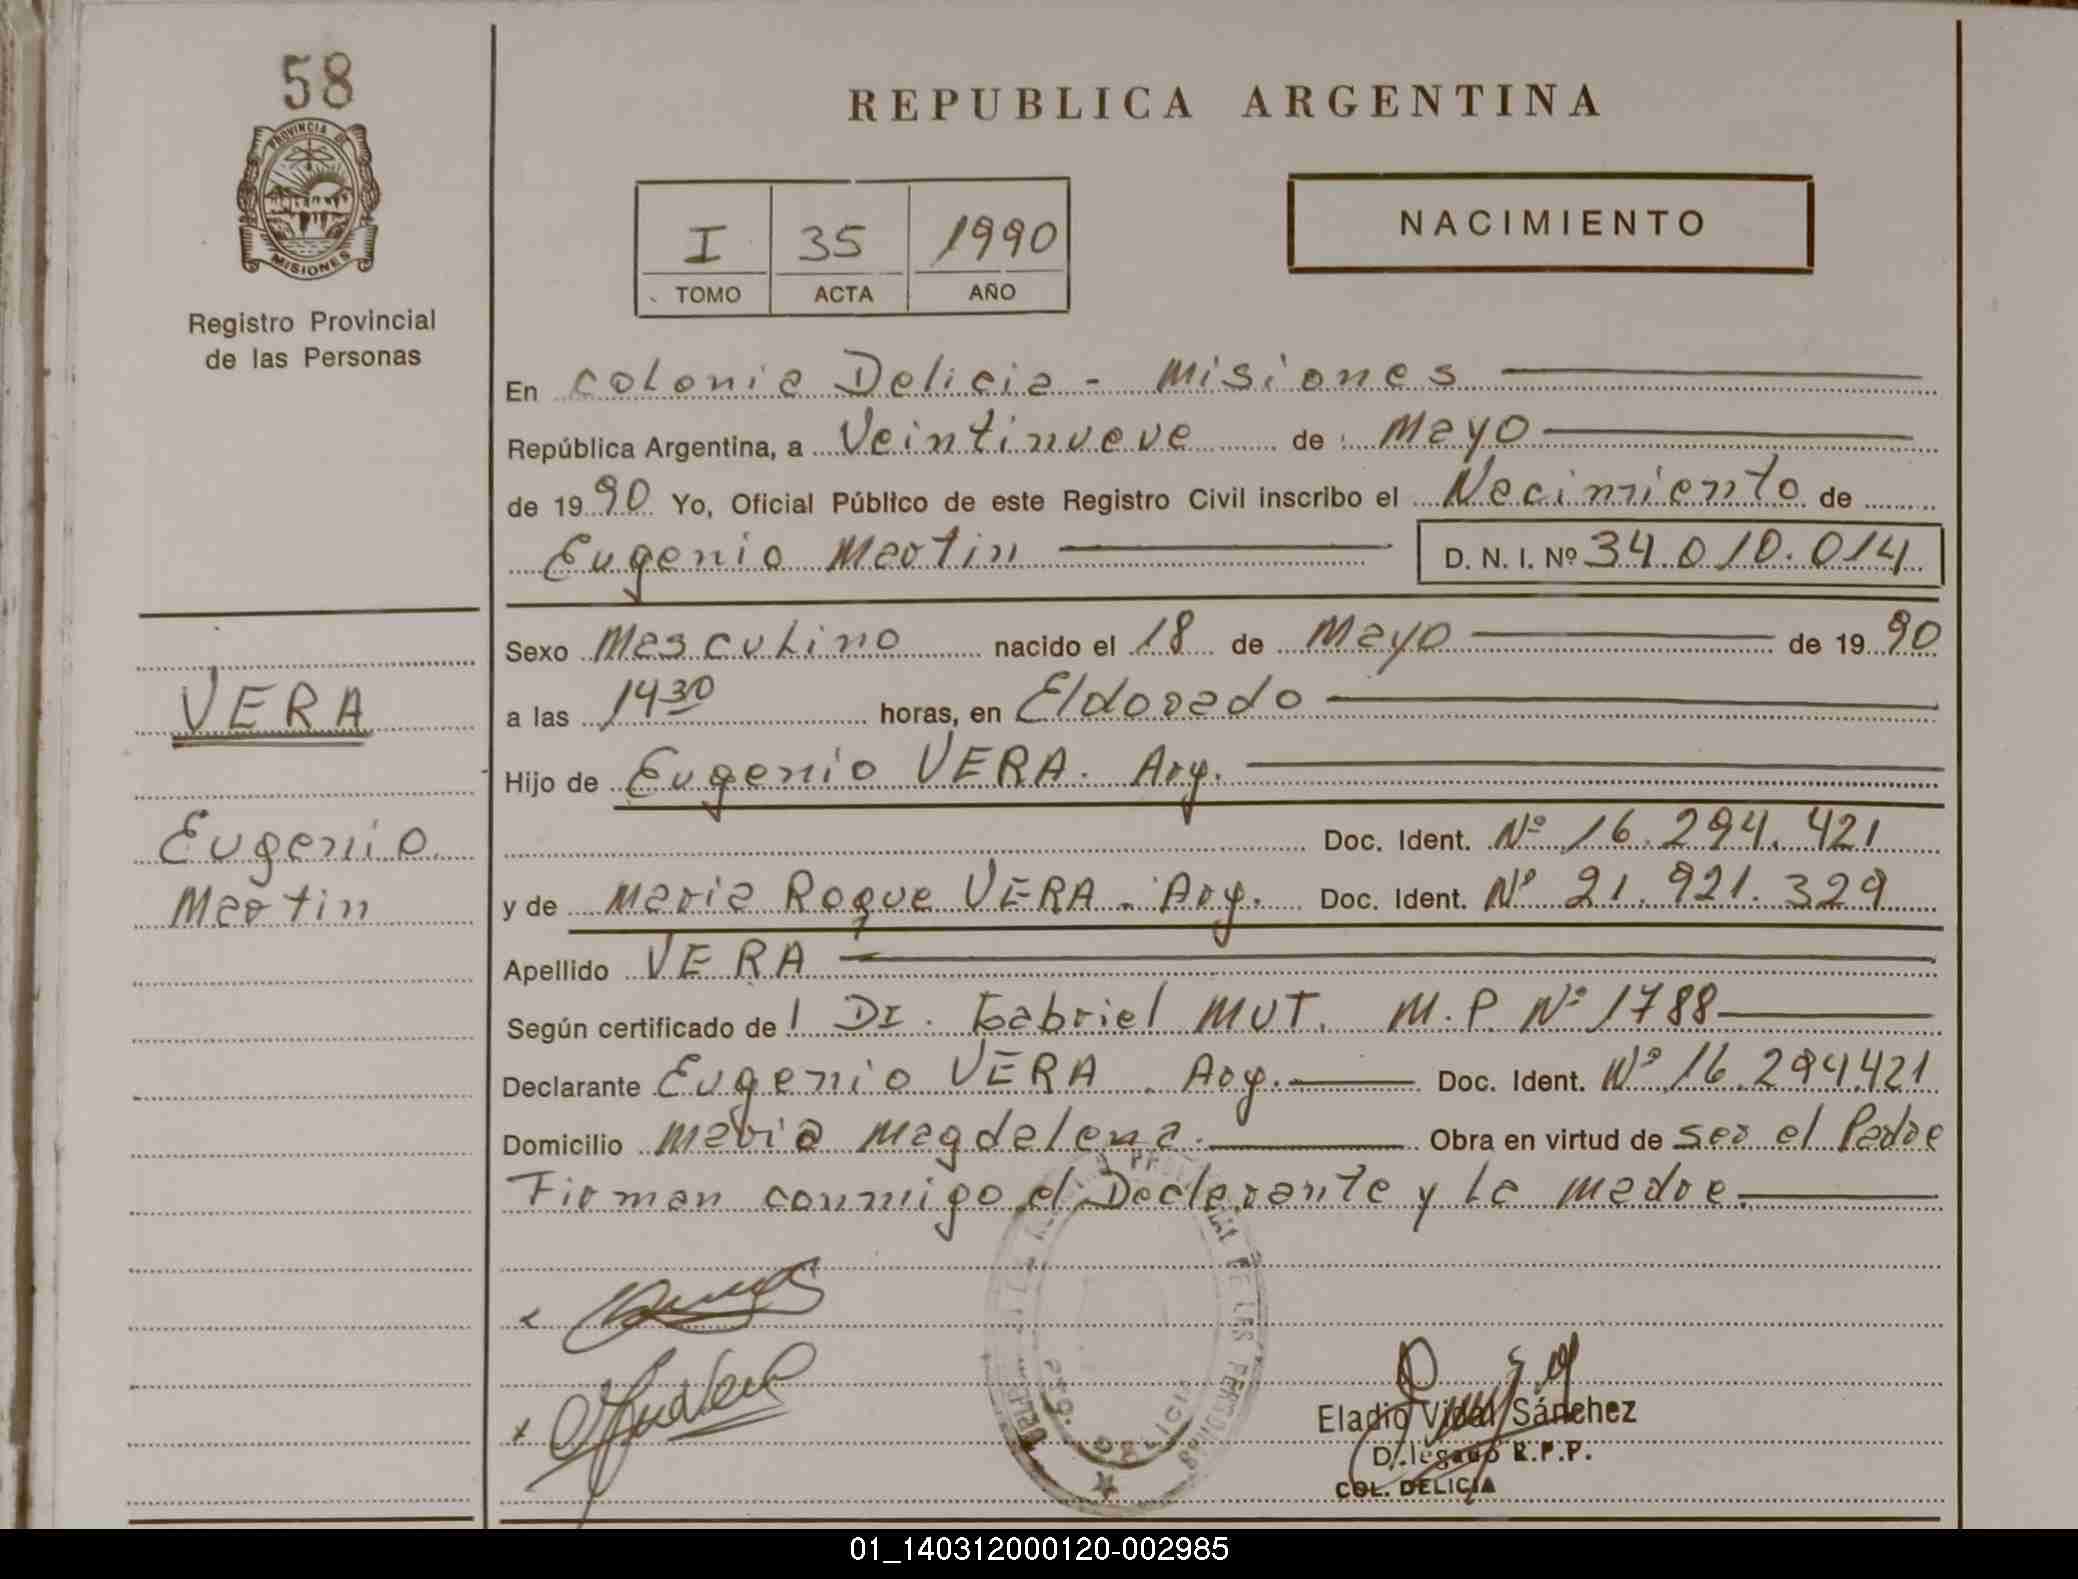 58
PROVINCIA DE
MISIONES
Registro Provincial
de las Personas
REPUBLICA ARGENTINA
I 35 1990
TOMO ACTA AÑO
NACIMIENTO
En Colonia Delicia - Misiones
República Argentina, a Veintinueve de Mayo
de 1990 Yo, Oficial Público de este Registro Civil inscribo el Nacimiento de
Eugenio Martin D. N. I. Nº 34.010.014
VERA
Eugenio
Martin
Sexo Masculino nacido el 18 de Mayo de 1990
a las 14 30 horas, en Eldorado
Hijo de Eugenio VERA. Arg.
Doc. Ident. Nº 16.294.421
y de Maria Roque VERA. Arg. Doc. Ident. Nº 21.921.329
Apellido VERA
Según certificado de Dr. Gabriel MUT. M.P. Nº 1788
Declarante Eugenio VERA. Arg. Doc. Ident. Nº 16.294.421
Domicilio Maria Magdalena. Obra en virtud de ser el Padre
Firman conmigo el Declarante y la madre.
DELICIA
Eladio Vidal Sánchez
Delegado R.P.P.
COL. DELICIA
01_140312000120-002985